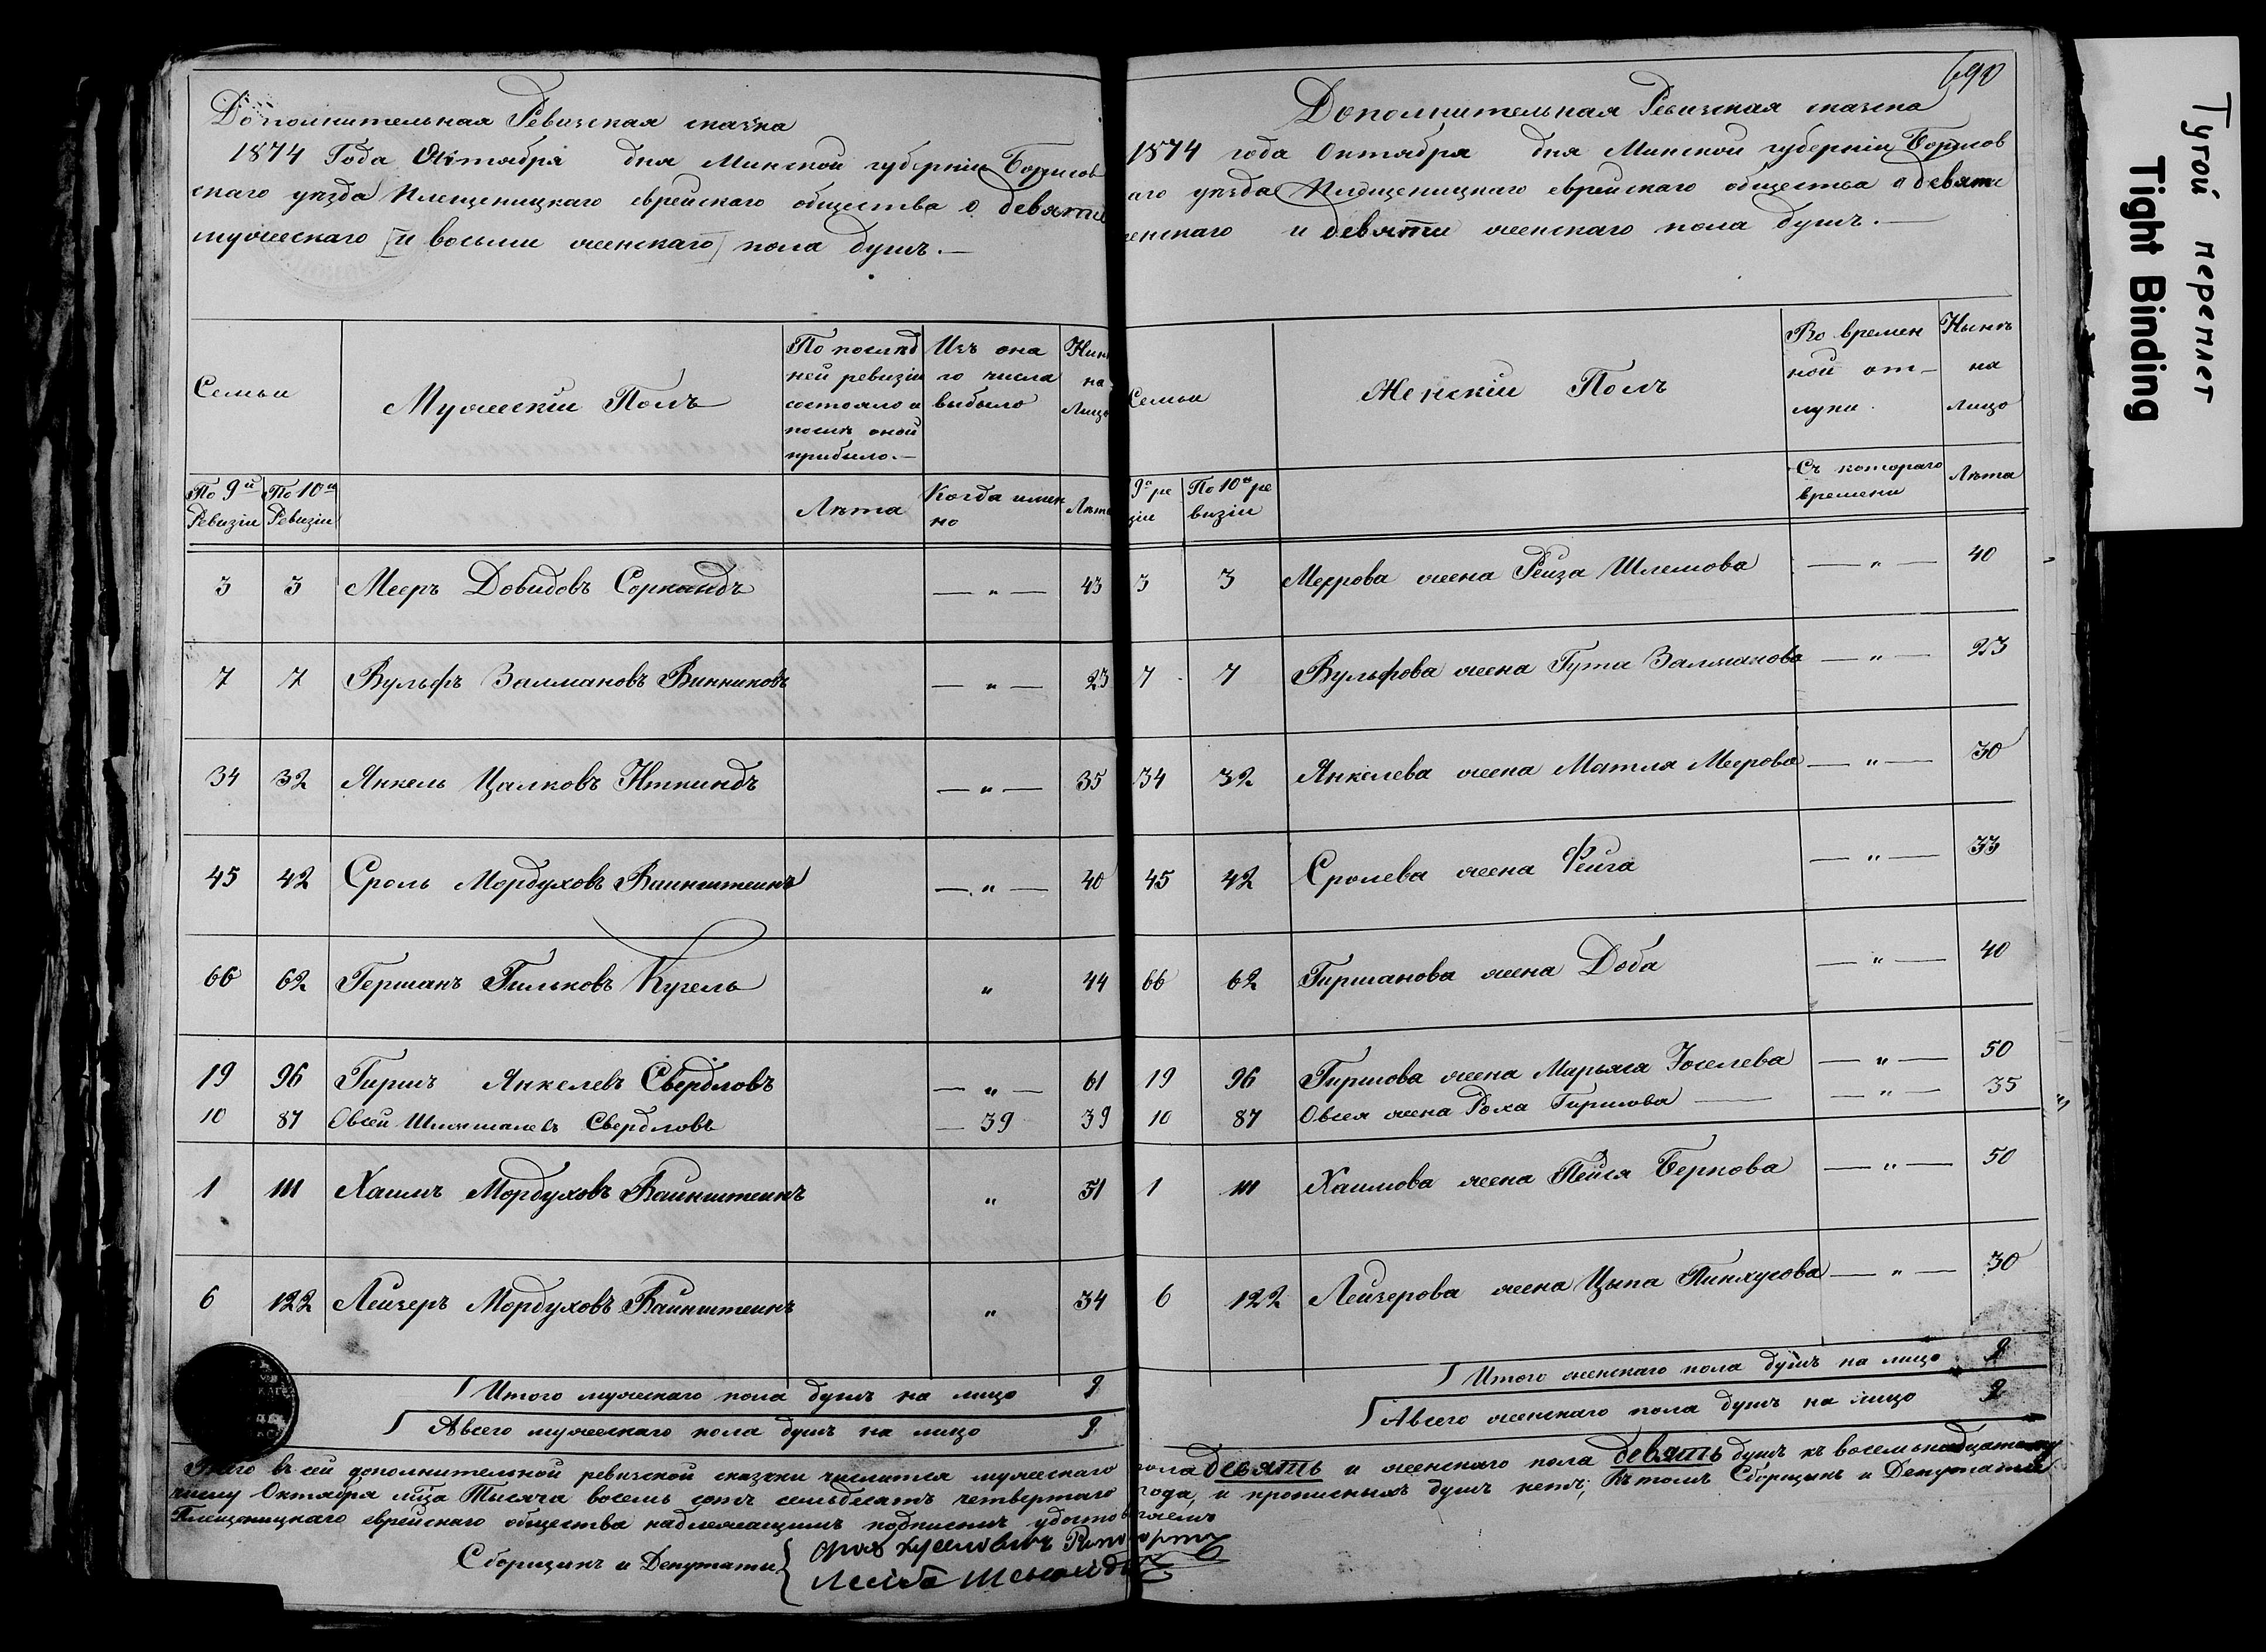 Дополнительная Ревизская сказка
1874 Года Октября дня Минской губерніи Борисов
скаго уѣзда Плещеницкаго еврейскаго общества о девяти
мужескаго [и восьми женскаго] пола душъ.—
Семьи
Мужескій Полъ
По послѣд
ней ревизіи
состояло и
послѣ оной
прибыло.—
Изъ она
го числа
выбыло
На
Лицо
По 9й Ревизіи
По 10й Ревизіи
Лѣта
Когда имен
но
Лѣта
3 3 Мееръ Довидовъ Соркандъ — " — 43
7 7 Вульфъ Залмановъ Винниковъ — " — 23
34 32 Янкель Цалковъ Иткиндъ — " — 35
45 42 Сроль Мордуховъ Вайнштейнъ — " — 40
66 62 Гершанъ Гильковъ Кугель " 44
19 96 Гиршъ Янкелевъ Свердловъ — " — 61
10 87 Овсей Свердловъ — 39 39
1 111 Хаимъ Мордуховъ Вайнштейнъ " 51
6 122 Лейзеръ Мордуховъ Вайнштейнъ " 34
Итого мужескаго пола душъ на лицо 9
А всего мужескаго пола душъ на лицо 9
690
Дополнительная Ревизская сказка
1874 года Октября дня Минской губерніи Борисов
аго уѣзда Плещеницкаго еврейскаго общества о девяти
и девяти женскаго пола душъ.—
Семьи
Женскій Полъ
Во времен
ной от-
лучки.
Нынѣ
на
лицо
9й ре
зіи
По 10й ре
визіи
Съ котораго
времени
Лѣта
3 3 Меерова жена Рейза Шлемова — " — 40
7 7 Вульфова жена Гута Залманова — " — 23
34 32 Янкелева жена Матля Меерова — " — 30
45 42 Сролева жена Фейга — " — 33
66 62 Гиршанова жена Доба — " — 40
19 96 Гиршова жена Марьяса Іоселева — " — 50
10 87 Овсея жена Роха Гиршова — " — 35
1 111 Хаимова жена Пейся Беркова — " — 50
6 122 Лейзерова жена Цыпа Пинхусова — " — 30
Итого женскаго пола душъ на лицо 9
А всего женскаго пола душъ на лицо 9
Всего въ сей дополнительной ревизской сказки числится мужескаго пола девять и женскаго пола девять душъ къ восемьнадцатому
числу Октября мѣсяца Тысяча восемь сотъ семьдесятъ четвертаго года, и прописныхъ душъ нетъ; Въ томъ Сборщикъ и Депутаты
Плещеницкаго еврейскаго общества надлежащимъ подписомъ удостовѣряемъ
Сборщикъ и Депутаты {
Тугой переплет
Tight Binding